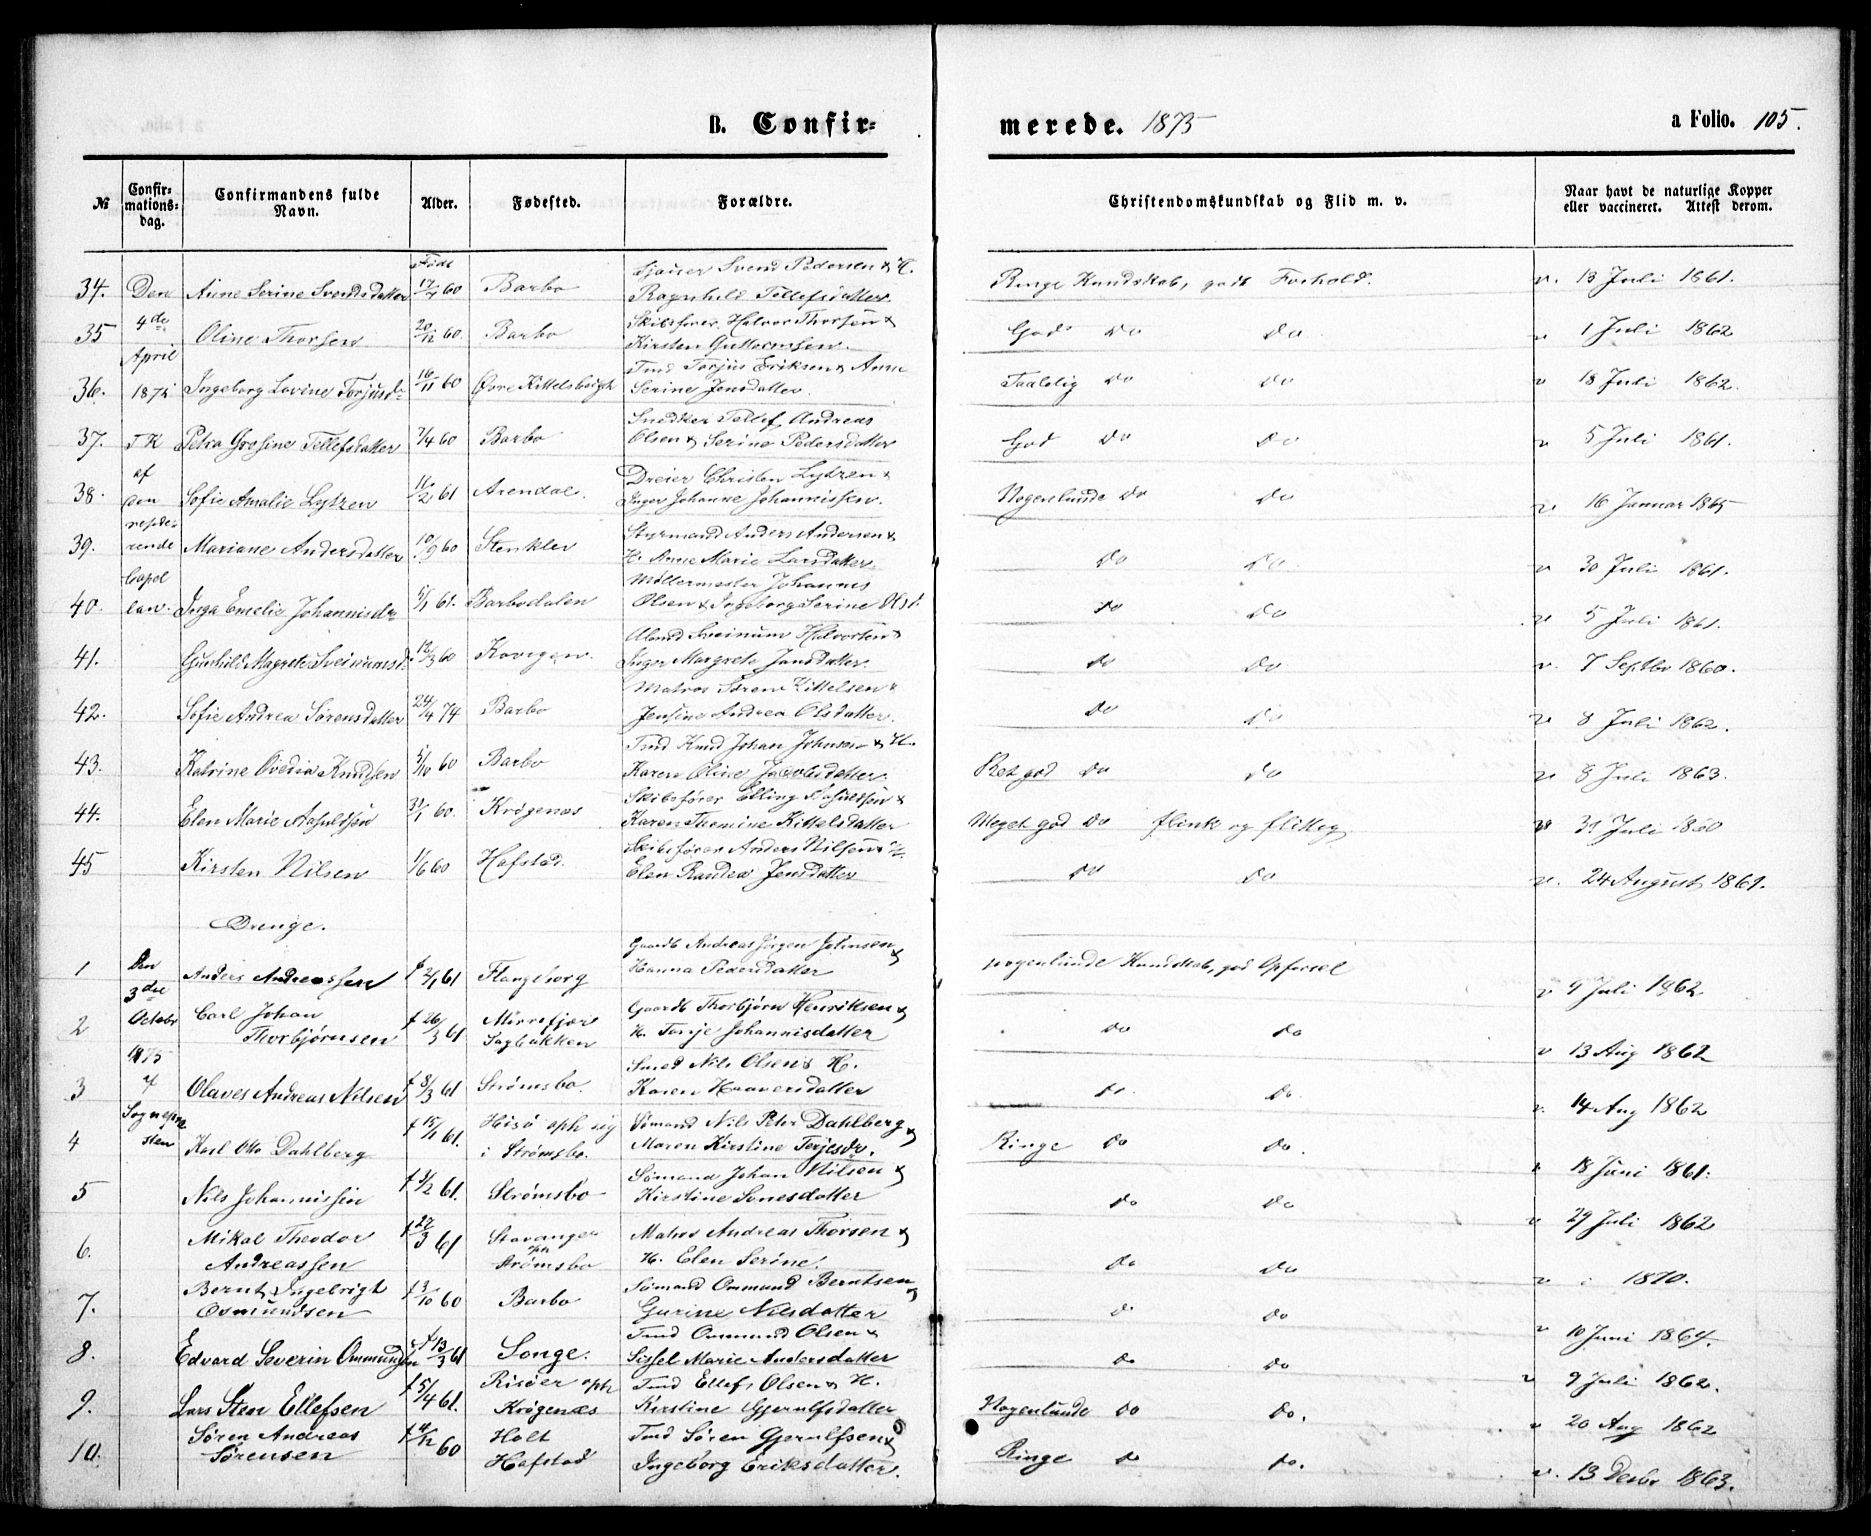 B. Confir-
merede. 1875
a Folio. 105.
№
Confir-
mations-
dag.
Confirmandens fulde
Navn.
Alder.
Fødested.
Forældre.
Christendomskundskab og Flid m. v.
Naar havt de naturlige Kopper
eller vaccineret. Attest derom.
Den
4de
April
1875
af
den
reside-
rende
Capel
lan.
34. Anne Serine Svendsdatter Født 60 Barbo Svend Pedersen & H.
Ragnhild Tellefsdatter. Ringe Kundskab, godt Forhold. v. 13 Juli 1861.
35 Oline Thorsen 20/12 60. Barbo Skibsfører Halvor Thorsen &
Kirsten Guttormsen. God do do v 1 Juli 1862
36. Ingeborg Lovine Torjusd. 16/11 60 Øvre Kittelsbugt Tmd Torjus Eriksen & Anne
Serine Jensdatter. Taalelig do do v 18 Juli 1862.
37. Petra Gresine Tellefsdatter 7/4 60 Barbo Snedker Tellef Andreas
Olsen & Serine Pedersdatter God do do v 5 Juli 1861.
38. Sofie Amalie Lytzen 16/2 61 Arendal. Dreier Christen Lytzen &
Inger Johanne Johannissen. Nogenlunde do do v 16 Januar 1865
39. Mariane Andersdatter 10/9 60 Stenklev Styrmand Anders Andersen &
H. Anne Marie Larsdatter do do v 30 Juli 1861.
40. Inga Emelie Johannisdr 5/1 61. Barbodalen Møllermester Johannes
Olsen & Ingeborg Serine Olsd. do do v 5 Juli 1861.
41. Gunhild Magrete Sveinumsd. 12/3 60 Kovigen. Sveinum Halvorsen &
Inger Margrete Jansdatter. do do v. 7 Septbr 1860.
42. Sofie Andrea Sørensdatter 24/4 74 Barbo Matros Søren Kittelsen &
Jensine Andrea Olsdatter. do do v 8 Juli 1862.
43. Katrine Ovedia Knudsen 5/10 60 Barbo Tmd Knud Johan Johnsen & H.
Karen Oline Jacobsdatter. Ret god do do v 8 Juli 1863.
44. Elen Marie Aasuldsen 31/1 60. Krøgenæs Skibsfører Elling Aasuldsen &
Karen Themine Kittelsdatter Meget god do flink og flittig, v 31 Juli 1860
45 Kirsten Nilsen 1/6 60 Hafstad. Skibsfører Anders Nilsen & H.
Elen Randea Jensdatter do do v. 24 August 1861.
Drenge.
Den
3die
Octobr
1875
af
Sognepre
sten
1 Anders Andreassen f 2/1 61 Flangeborg Gaardb Andreas Jørgen Johnsen &
Hanna Pedersdatter nogenlunde Kundskab, god Opførsel v 9 Juli 1862
2 Carl Johan
Thorbjørnsen f 26/3 61 Mirrefjær
Sagbakken Gaardb Thorbjørn Henriksen &
H. Tonje Johannisdatter do do v 13 Aug 1862
3 Olaves Andreas Nilsen f 8/3 61 Strømsbo. Smed Nils Olsen & H.
Karen Haaversdatter do. do. v. 14 Aug 1862
4 Karl Otto Dahlberg f 15/1 61. Hisø oph sig
i Strømsbo. Sømand Nils Petr Dahlberg &
Maren Kirstine Terjesdr. Ringe do do. v 18 Juni 1861.
5 Nils Johannissen f 3/2 61. Strømsbo Sømand Johan Nilsen &
Kirstine Sonesdatter do do v 29 Juli 1862
6. Mikal Theodor
Andreassen f 27/3 61 Stavanger
oph
Strømsbo Matros Andreas Thorsen &
H. Elen Serine. do do v 1870.
7. Bernt Ingebrigt
Osmundsen f 3/10 60 Barbo Sømand Ommund Berntsen &
Gurine Nilsdatter do do v 10 Juni 1864.
8. Edvard Severin Ommundsen f 13/3 61 Songe. Tmd Ommund Olsen &
Sissel Marie Andersdatter do do v 9 Juli 1862.
9. Lars Sten Ellefsen f 5/4 61. Risøer oph
Krøgenæs Tmd Ellef Olsen & H.
Kirstine Gjerulfsdatter Nogenlunde do do. v 20 Aug 1862
10. Søren Andreas
Sørensen f 4/12 60 Holt
Hafstad Tmd Søren Gjerulfsen &
Ingeborg Eriksdatter. Ringe do do. v. 13 Decbr 1863.